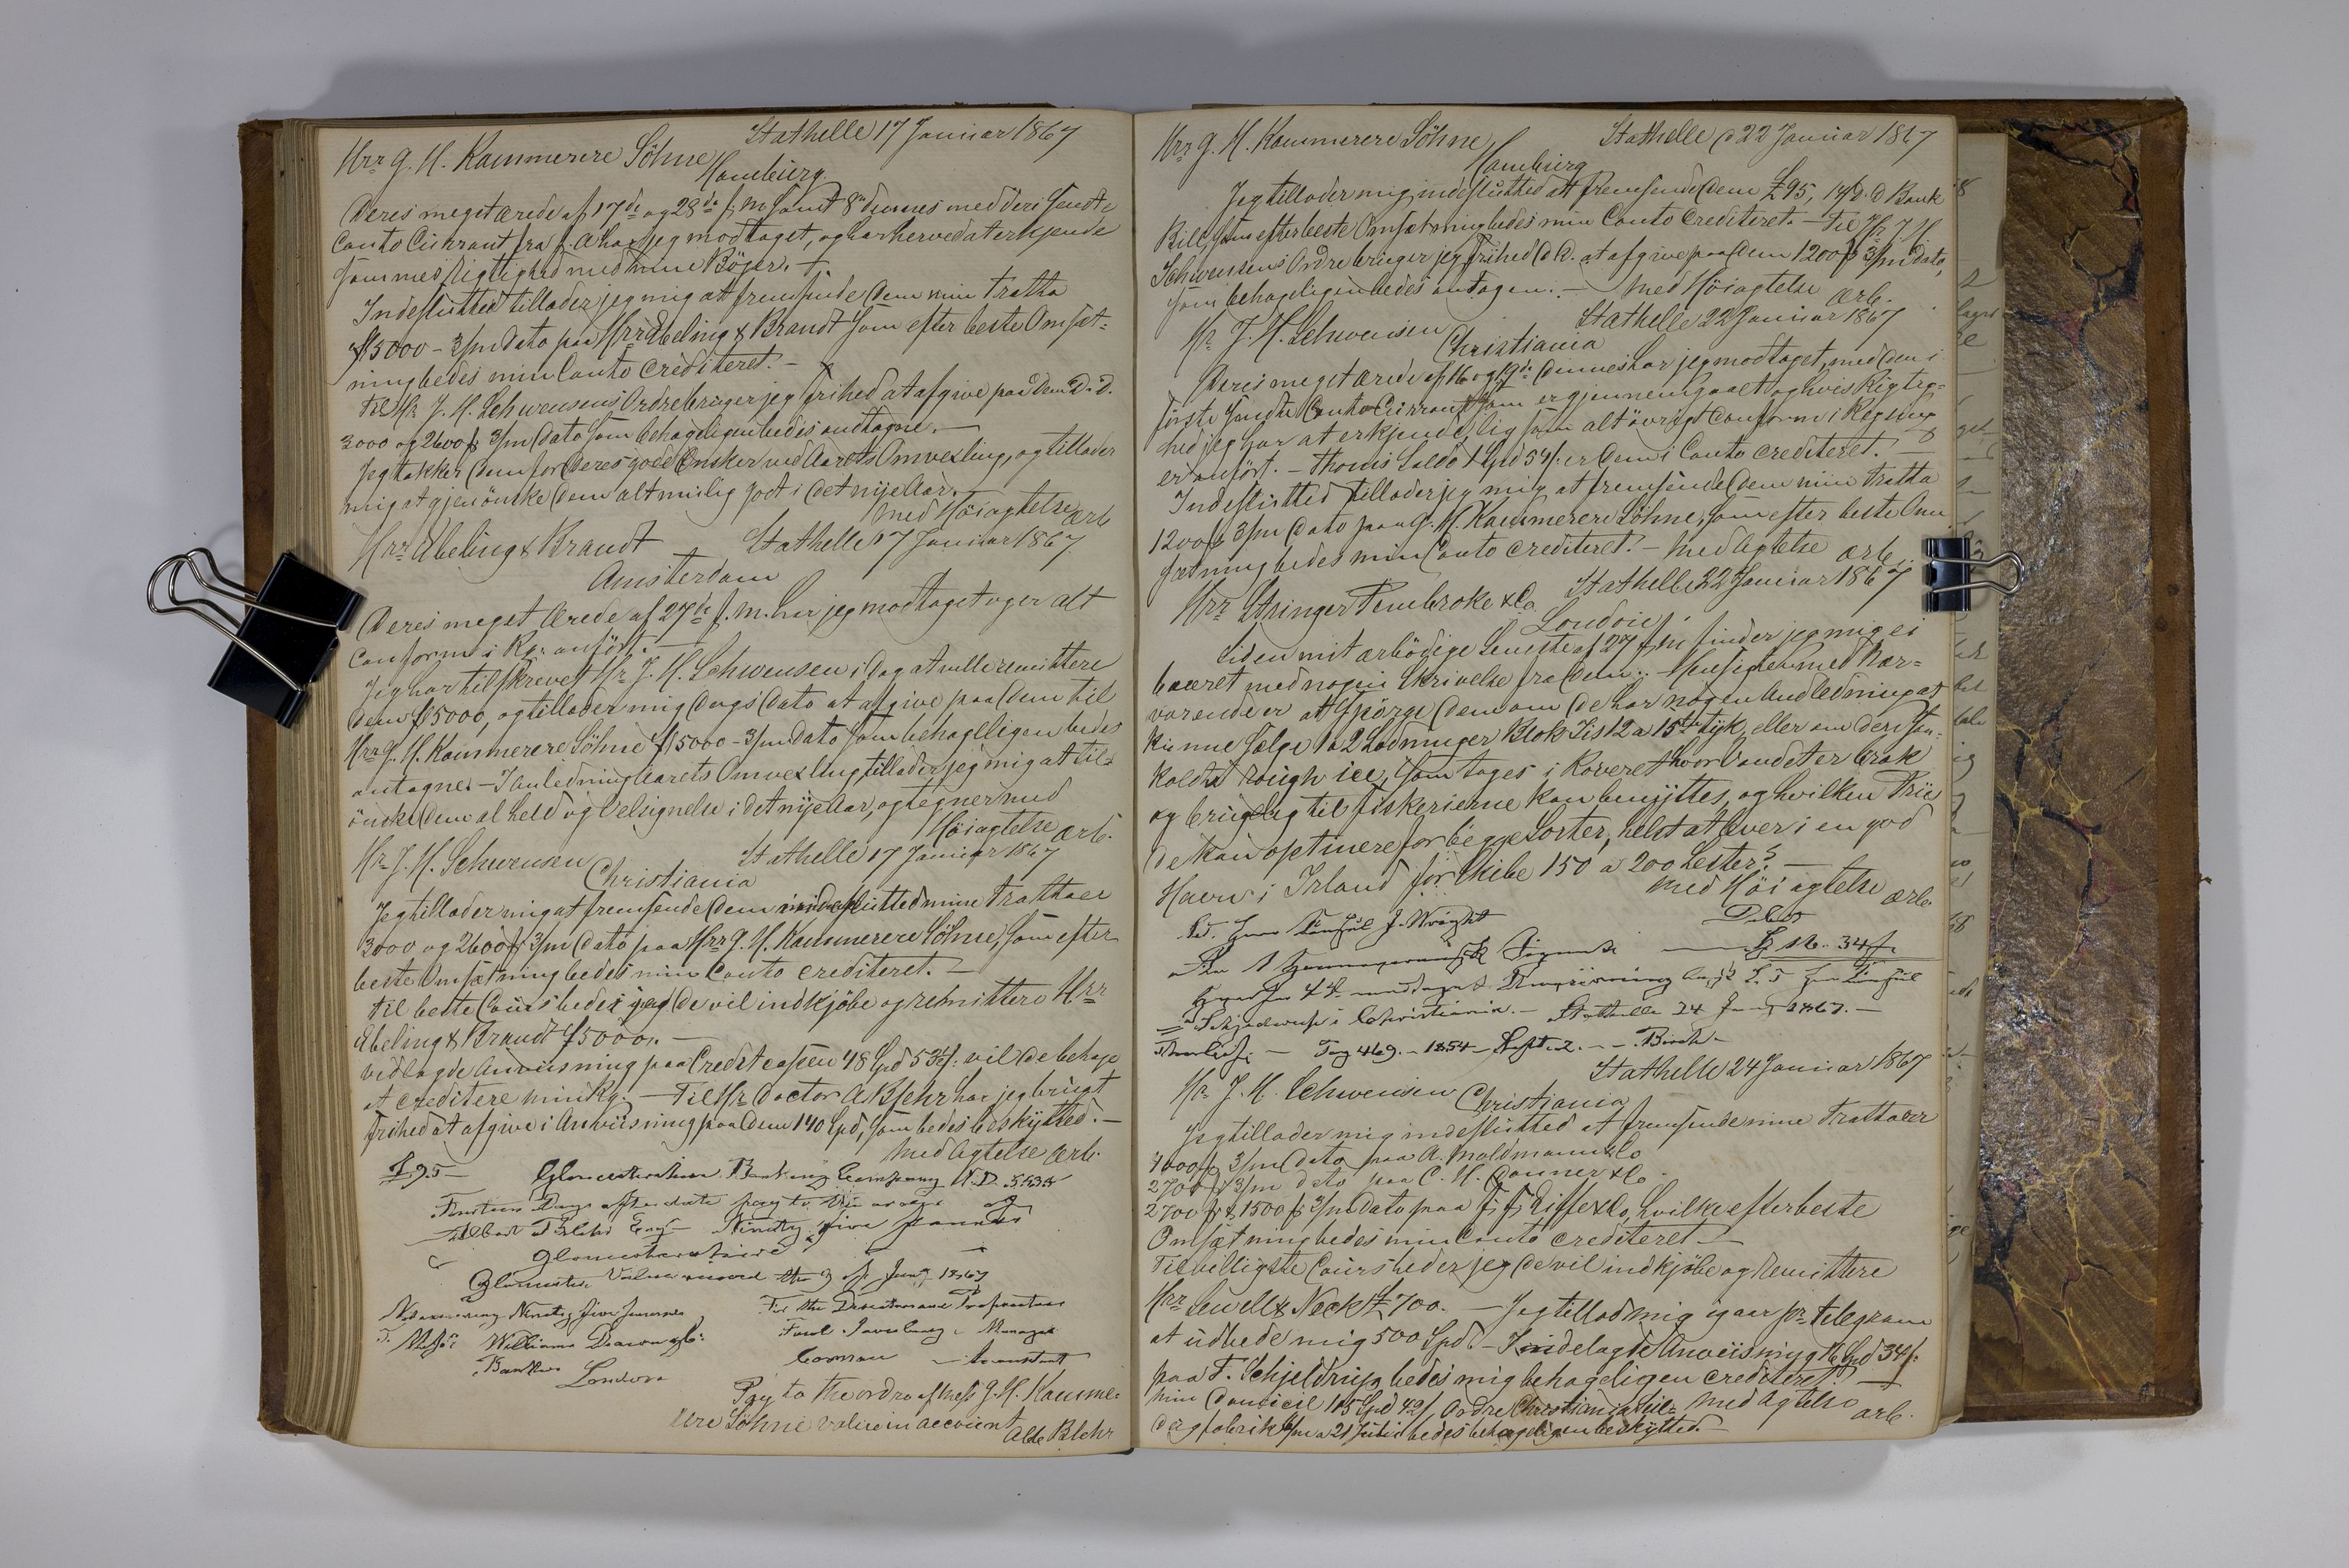 Stathelle 17 Januar 1867
Hrr G. H. Kæmmerere Söhne
Hamburg.
Deres meget ærede af 17de og 28de f. m. samt 8de dennes med deri sendte
Conto Currant fra f. A har jeg modtaget, og har herved at erkjende
sammes Rigtighed med mine Böger. —
Indeslutted tillader jeg mig at fremsende Dem min Tratta
f 5000 – 3/m dato paa Hrr Ebeling & Brandt som efter beste Omsæt=
ning bedes min Conto crediteret. —
Til Hr J. H. Schwensens Ordre bruger jeg frihed at afgive paa Dem D. D.
3000 og 2600 f 3/m Dato som behageligen bedes andtagne. —
Jeg takker Dem for Deres gode Ønsker ved Aarets Omvexling, og tillader
mig at gjenönske Dem alt mulig godt i det nye Aar.
Med Höiagtelse ærb
Hrr Ebeling & Brandt Stathelle 17 Januar 1867
Amsterdam
Deres meget Ærede af 27de f. m. har jeg modtaget og er alt
conform i Rg. anfört. —
Jeg har tilskrevet Hr J. H. Schwensen i dag at ville remittere
Dem f 5000, og tillader mig Dags Dato at afgive paa Dem til
Hrr G. H. Kæmmerere Söhne f 5000 – 3/m dato som behageligen bedes
antagne. – I anledning Aarets Omvexling tillader jeg mig at til=
önske Dem al held og Velsignelse i det nye Aar, og tegner med
Höiagtelse ærb.
Hr J. H. Schwensen Stathelle 17 Januar 1867
Christiania
Jeg tillader mig at fremsende Dem indeslutted mine Trattaer
3000 og 2600 f 3/m Dato paa Hrr G. H. Kæmmerere Söhne, som efter
beste Omsætning bedes min Conto crediteret. —
Til beste Cours bedes jeg De vil indkjöbe og remittere Hrr
Ebeling & Brandt f 5000. —
Vedlagde Anvisning paa Creditcassen 48 Spd vil De behage
at creditere min Rg. — Til Hr Doctor A Blehr har jeg brugt
frihed at afgive i Anviisning paa Dem 140 Spd, som bedes beskyttet. —
Med Agtelse ærb.
£ 95 — Gloucestershire Banking Company
Fourteen Days after date pay to the order of
Albert Blehr Esq — Ninety five pounds
Gloucestershire
Gloucester Value received the 9 of Jany 1867
Ninety five pounds For the Directors and Proprietors
Williams Deacon & Co: Manager
Bankers
London
Pay to the ordre of Mess G. H. Kæmme=
rere Söhne value in account
Alb Blehr
Hrr G. H. Kæmmerere Söhne Stathelle d 22 Januar 1867
Hamburg
Jeg tillader mig indesluttet at fremsende Dem £ 95, 14/D. D Bank
Bill som efter beste Omsætning bedes min Conto Crediteret. — Til Hr J. H.
Schwensens Ordre bruger jeg frihed D D. at afgive paa Dem 1200 f 3/m Dato,
som behageligen bedes antagen. — Med Höiagtelse ærb.
Stathelle 22 Januar 1867
Hr J. H. Schwensen
Christiania
Deres meget ærede af 16 og 19de dennes har jeg modtaget, med den i
förste sendte Conto Currant som er gjennemgaaet og hvis Rigtig=
hed jeg har at erkjende, lig som alt övrigt conform i Regning
er anfört. – Thomis Saldo 1 Spd 54 s. er Dem i Conto crediteret. —
Indesluttet tillader jeg mig at fremsende Dem min Tratta
1200 f 3/m Dato paa G. H. Kæmmerere Söhne, som efter beste Om
sætning bedes min Conto crediteret. – Med Agtelse ærb
Stathelle 22 Januar 1867
Hrr Stringer Pembroke & Co
London
Siden mit ærbödige Seneste af 27 f. m. finder jeg mig ei
bæeret med nogen Skrivelse fra Dem. – Hensigten med Nær=
værende er at Spörge Dem om De har nogen Andledning at
kunne sælge 1 a 2 Ladninger Blok Iis 12 a 15 tyk, eller om den saa=
kaldte Rough ice, som tages i Röveret hvor Vandet er brak
og brugelig til Fiskerierne kan benyttes, og hvilken Priis
de kan optinere for begge Sorter, helst at lever i en god
Havn i Irland för Skibe 150 a 200 Lester? —
Med Höi agtelse ærb.
J. Wright
34
Schjelderup i Christiania. – Stathelle 24 Jany 1867. —
Stathelle 24 Januar 1867
Hr J. H. Schwensen
Christiania
Jeg tillader mig indesluttet at fremsende mine Trattaer
4000 f 3/m Dato paa A. Moldmann & Co
2700 f 3/m dato paa C. H. Donner & Co
2700 f & 1500 f 3/m Dato paa F. F. Eiffe & Co, hvilke efter beste
Omsætning bedes min Conto crediteret —
Til billigste Cours beder jeg De vil indkjöbe og Remittere
Hrr Sewell & Neck £ 700. — Jeg tillod mig igaar pr Telegram
at udbede mig 500 Spd. – Indelagde Anviisning 16 Spd 34 s.
paa F. Schjeldrup bedes mig behageligen crediteret. —
Min Domicil 105 Spd 42 s, Ordre Christiania Med Agtelse
fabrik bedes behageligen beskyttet. — ærb.